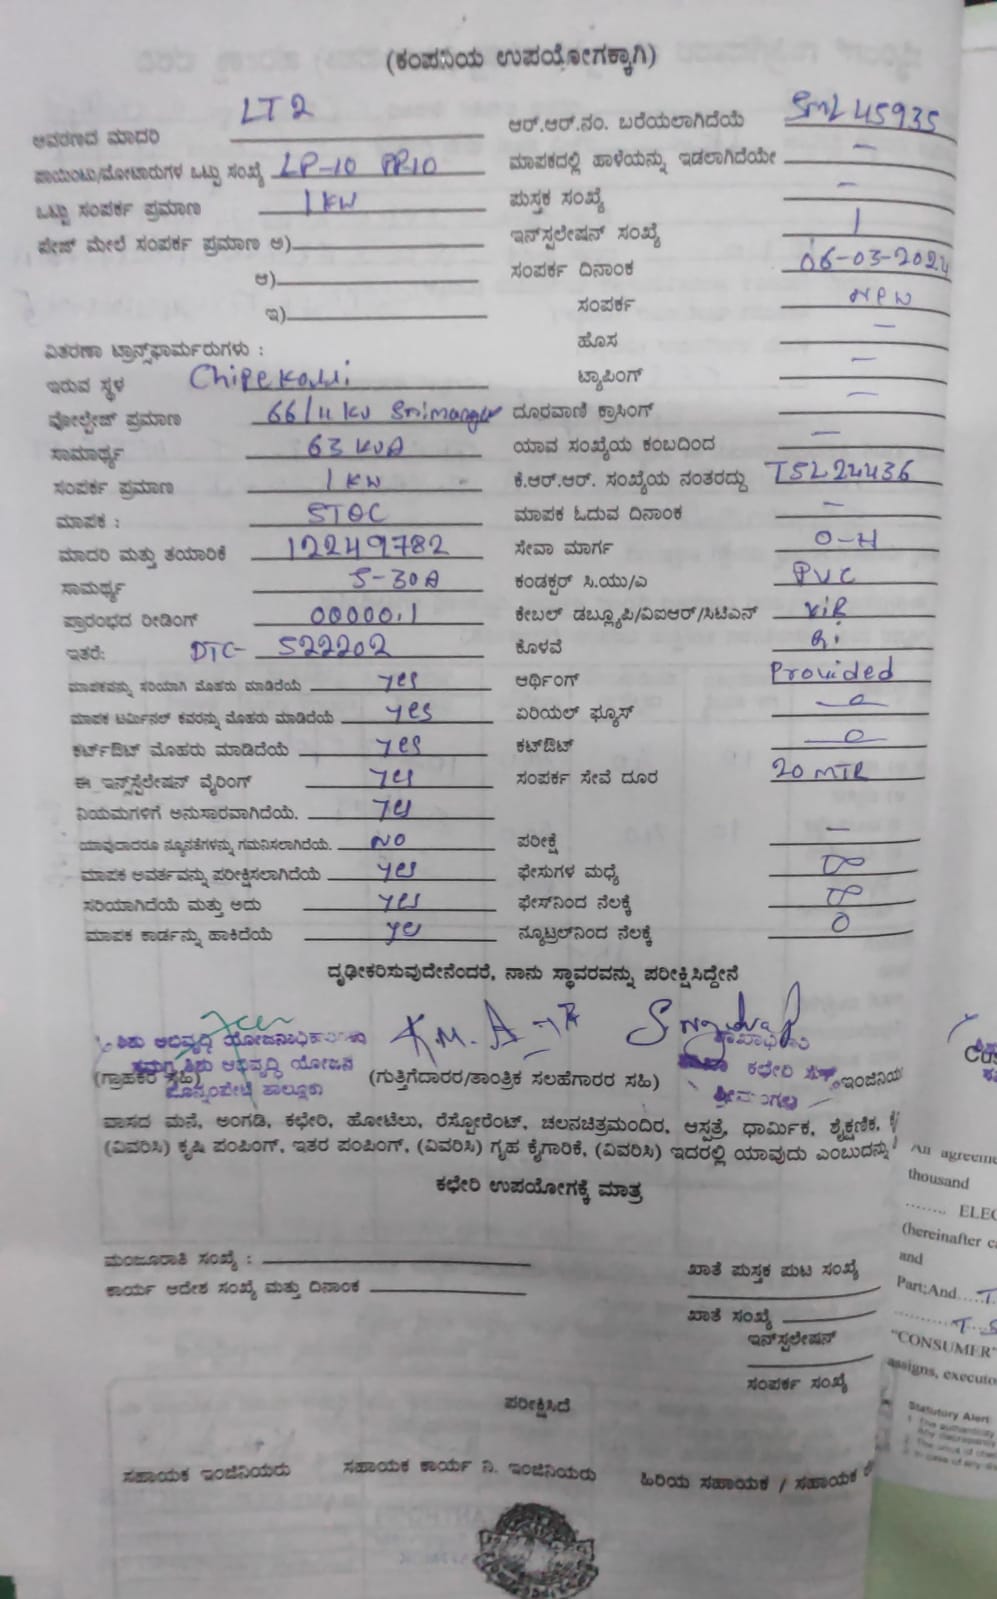 (ಕಂಪನಿಯ ಉಪಯೋಗಕ್ಕಾಗಿ)
ಆವರಣದ ಮಾದರಿ LT2
ಪಾಯಿಂಟು/ಮೋಟಾರುಗಳ ಒಟ್ಟು ಸಂಖ್ಯೆ LP-10 PP-10
ಒಟ್ಟು ಸಂಪರ್ಕ ಪ್ರಮಾಣ 1 KW
ಪೇಜ್ ಮೇಲೆ ಸಂಪರ್ಕ ಪ್ರಮಾಣ ಅ)
ಆ)
ಇ)
ವಿತರಣಾ ಟ್ರಾನ್ಸ್‌ಫಾರ್ಮರುಗಳು :
ಇರುವ ಸ್ಥಳ
ವೋಲ್ಟೇಜ್ ಪ್ರಮಾಣ 66/11 KV Srimangla
ಸಾಮರ್ಥ್ಯ 63 KVA
ಸಂಪರ್ಕ ಪ್ರಮಾಣ 1 KW
ಮಾಪಕ :
ಮಾದರಿ ಮತ್ತು ತಯಾರಿಕೆ 12249782
ಸಾಮರ್ಥ್ಯ 5-30A
ಪ್ರಾರಂಭದ ರೀಡಿಂಗ್ 00000.1
ಇತರೆ: DTC- 522202
ಮಾಪಕವನ್ನು ಸರಿಯಾಗಿ ಮೊಹರು ಮಾಡಿದೆಯೆ yes
ಮಾಪಕ ಟರ್ಮಿನಲ್ ಕವರನ್ನು ಮೊಹರು ಮಾಡಿದೆಯೆ yes
ಕಟ್‌ಔಟ್ ಮೊಹರು ಮಾಡಿದೆಯೆ yes
ಈ ಇನ್ಸ್‌ಸ್ಟಲೇಷನ್ ವೈರಿಂಗ್ yes
ನಿಯಮಗಳಿಗೆ ಅನುಸಾರವಾಗಿದೆಯೆ. yes
ಯಾವುದಾದರೂ ನ್ಯೂನತೆಗಳನ್ನು ಗಮನಿಸಲಾಗಿದೆಯೆ. NO
ಮಾಪಕ ಅವರ್ತವನ್ನು ಪರೀಕ್ಷಿಸಲಾಗಿದೆಯೆ yes
ಸರಿಯಾಗಿದೆಯೆ ಮತ್ತು ಅದು yes
ಮಾಪಕ ಕಾರ್ಡನ್ನು ಹಾಕಿದೆಯೆ yes
ಆರ್.ಆರ್.ನಂ. ಬರೆಯಲಾಗಿದೆಯೆ SML45935
ಮಾಪಕದಲ್ಲಿ ಹಾಳೆಯನ್ನು ಇಡಲಾಗಿದೆಯೇ –
ಪುಸ್ತಕ ಸಂಖ್ಯೆ –
ಇನ್‌ಸ್ಪಲೇಷನ್ ಸಂಖ್ಯೆ 1
ಸಂಪರ್ಕ ದಿನಾಂಕ 06-03-2024
ಸಂಪರ್ಕ New
ಹೊಸ –
ಟ್ಯಾಪಿಂಗ್ –
ದೂರವಾಣಿ ಕ್ರಾಸಿಂಗ್ –
ಯಾವ ಸಂಖ್ಯೆಯ ಕಂಬದಿಂದ –
ಕೆ.ಆರ್.ಆರ್. ಸಂಖ್ಯೆಯ ನಂತರದ್ದು TSL24436
ಮಾಪಕ ಓದುವ ದಿನಾಂಕ –
ಸೇವಾ ಮಾರ್ಗ O-H
ಕಂಡಕ್ಟರ್ ಸಿ.ಯು/ಎ PVC
ಕೇಬಲ್ ಡಬ್ಲ್ಯೂಪಿ/ವಿಐಆರ್/ಸಿಟಿಎಸ್ ViR
ಕೊಳವೆ
ಆರ್ಥಿಂಗ್ Provided
ಏರಿಯಲ್ ಫ್ಯೂಸ್
ಕಟ್‌ಔಟ್
ಸಂಪರ್ಕ ಸೇವೆ ದೂರ 20 MTR
ಪರೀಕ್ಷೆ –
ಫೇಸುಗಳ ಮಧ್ಯೆ ∞
ಫೇಸ್‌ನಿಂದ ನೆಲಕ್ಕೆ ∞
ನ್ಯೂಟ್ರಲ್‌ನಿಂದ ನೆಲಕ್ಕೆ 0
ದೃಢೀಕರಿಸುವುದೇನೆಂದರೆ, ನಾನು ಸ್ಥಾವರವನ್ನು ಪರೀಕ್ಷಿಸಿದ್ದೇನೆ
ಶಿಶು ಅಭಿವೃದ್ಧಿ ಯೋಜನಾಧಿಕಾರಿಗಳು
ಸಮಗ್ರ ಶಿಶು ಅಭಿವೃದ್ಧಿ ಯೋಜನೆ
ಪೊನ್ನಂಪೇಟೆ ತಾಲ್ಲೂಕು
(ಗ್ರಾಹಕರ ಸಹಿ) (ಗುತ್ತಿಗೆದಾರರ/ತಾಂತ್ರಿಕ ಸಲಹೆಗಾರರ ಸಹಿ) ಇಂಜಿನಿಯ
ಶಾಖಾಧಿಕಾರಿ
ಕಛೇರಿ
ಶ್ರೀಮಂಗಲ
ವಾಸದ ಮನೆ, ಅಂಗಡಿ, ಕಛೇರಿ, ಹೋಟೆಲು, ರೆಸ್ಟೋರೆಂಟ್, ಚಲನಚಿತ್ರಮಂದಿರ, ಆಸ್ಪತ್ರೆ, ಧಾರ್ಮಿಕ, ಶೈಕ್ಷಣಿಕ,
(ವಿವರಿಸಿ) ಕೃಷಿ ಪಂಪಿಂಗ್, ಇತರ ಪಂಪಿಂಗ್, (ವಿವರಿಸಿ) ಗೃಹ ಕೈಗಾರಿಕೆ, (ವಿವರಿಸಿ) ಇದರಲ್ಲಿ ಯಾವುದು ಎಂಬುದನ್ನು
ಕಛೇರಿ ಉಪಯೋಗಕ್ಕೆ ಮಾತ್ರ
ಮಂಜೂರಾತಿ ಸಂಖ್ಯೆ :
ಕಾರ್ಯ ಆದೇಶ ಸಂಖ್ಯೆ ಮತ್ತು ದಿನಾಂಕ
ಖಾತೆ ಪುಸ್ತಕ ಪುಟ ಸಂಖ್ಯೆ
ಖಾತೆ ಸಂಖ್ಯೆ
ಇನ್‌ಸ್ಪಲೇಷನ್
ಸಂಪರ್ಕ ಸಂಖ್ಯೆ
ಪರೀಕ್ಷಿಸಿದೆ
ಸಹಾಯಕ ಇಂಜಿನಿಯರು ಸಹಾಯಕ ಕಾರ್ಯ ನಿ. ಇಂಜಿನಿಯರು ಹಿರಿಯ ಸಹಾಯಕ / ಸಹಾಯಕ
Cus
An agreeme
thousand
........ ELEC
(hereinafter c
and
Part;And.....T
"CONSUMER"
assigns, executo
Statutory Alert: